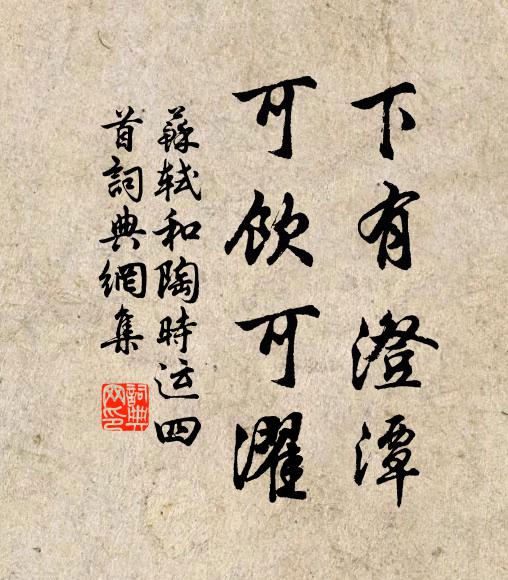 下有澄潭
可飲可濯
蘇軾和陶時运四
首詞典網集
詞典
网印